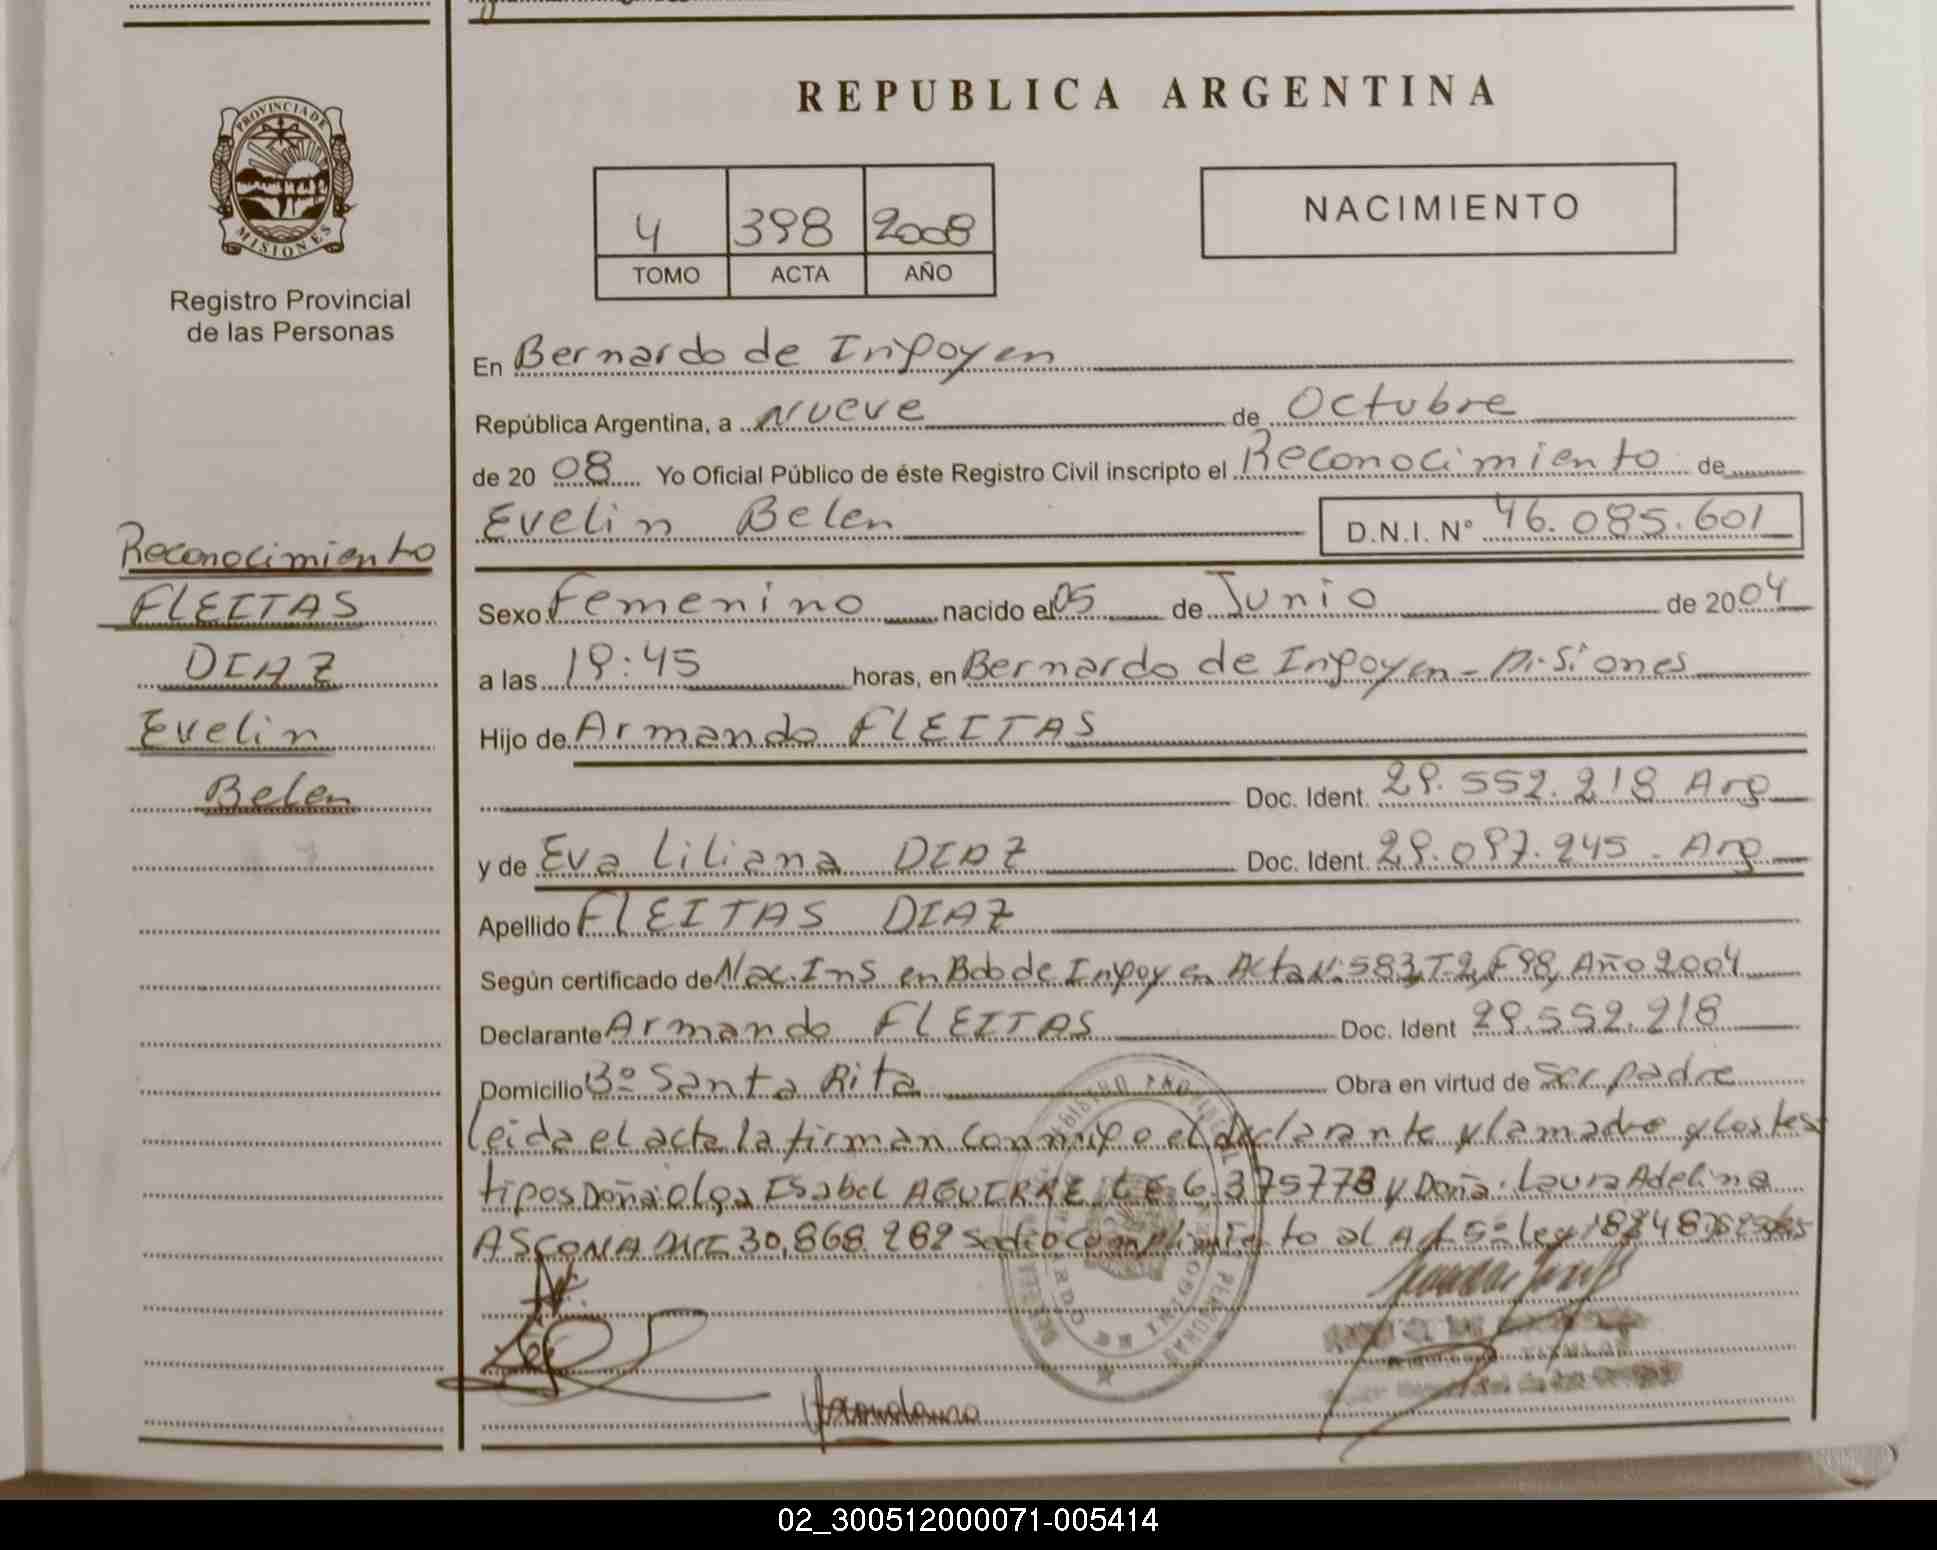 REPUBLICA ARGENTINA
PROVINCIA DE
MISIONES
Registro Provincial
de las Personas
4 398 2008
TOMO ACTA AÑO
NACIMIENTO
En Bernardo de Irigoyen
República Argentina, a Nueve de Octubre
de 20 08 Yo Oficial Público de éste Registro Civil inscripto el Reconocimiento de
Evelin Belen D.N.I. Nº 46.085.601
Reconocimiento
FLEITAS
DIAZ
Evelin
Belen
Sexo Femenino nacido el 05 de Junio de 20 04
a las 19:45 horas, en Bernardo de Irigoyen - Misiones
Hijo de Armando FLEITAS
Doc. Ident. 29.552.218 Arg
y de Eva Liliana DIAZ Doc. Ident. 29.097.245 - Arg
Apellido FLEITAS DIAZ
Según certificado de Nac. Ins en Bdo de Irigoyen Acta Nº 583, T-2, F 98, Año 2004
Declarante Armando FLEITAS Doc. Ident 29.552.218
Domicilio Bº Santa Rita Obra en virtud de Ser padre
Leida el acta la firman conmigo el declarante y la madre y los tes
tigos Doña: Olga Isabel AGUIRRE 6.375778 y Doña: Laura Adelina
ASCONA DNI 30.868.282 Se dio cumplimiento al Art 5º Ley 18248
02_300512000071-005414